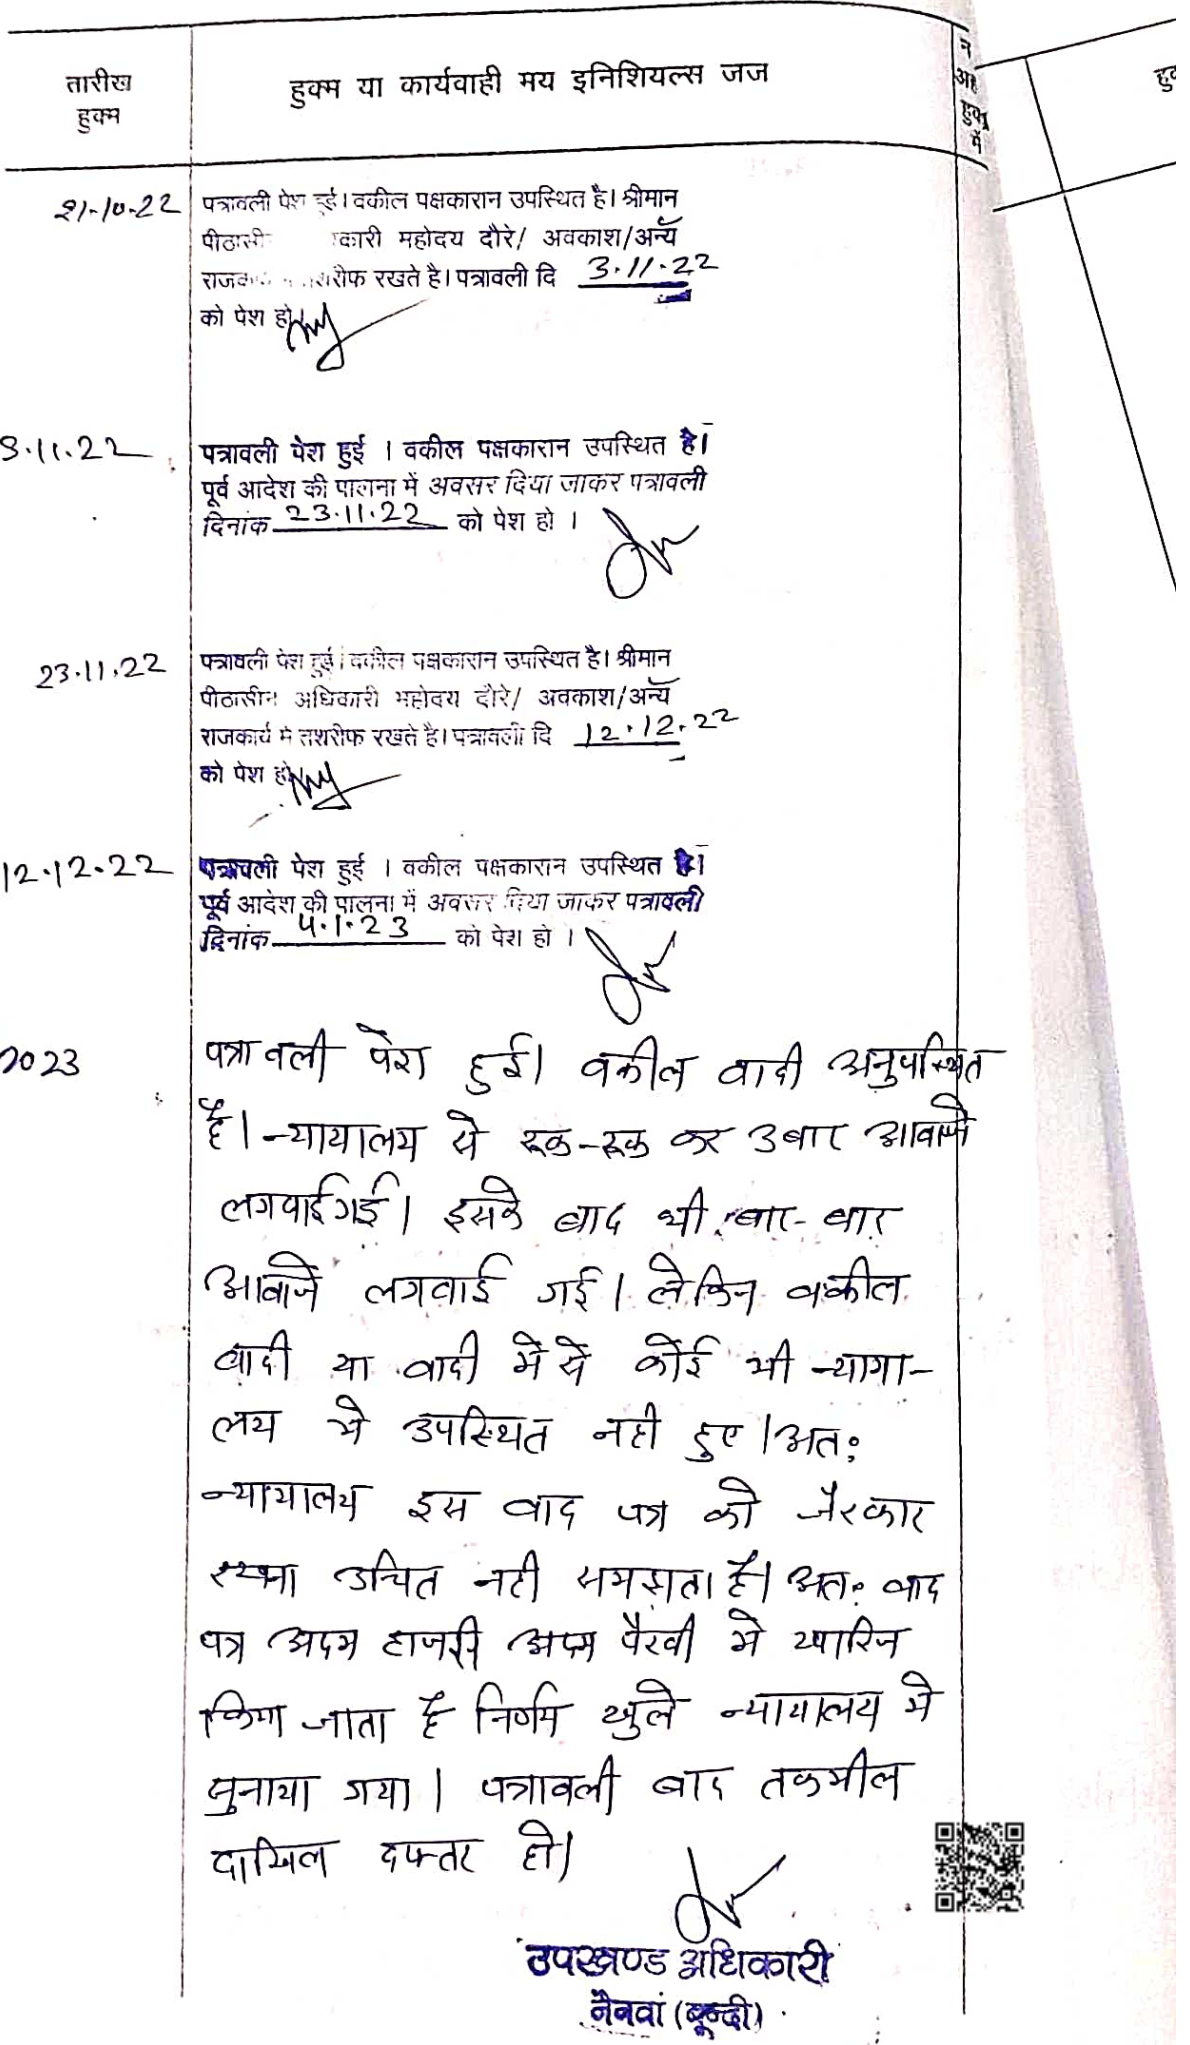 तारीख
हुक्म
हुक्म या कार्यवाही मय इनिशियल्स जज
न
अह
हुक्म
में
21-10-22
पत्रावली पेश हुई। वकील पक्षकारान उपस्थित है। श्रीमान
कारी महोदय दौरे/ अवकाश/अन्य
रखते है। पत्रावली दि 3.11.22
को पेश हो
3.11.22
पत्रावली पेश हुई । वकील पक्षकारान उपस्थित है।
पूर्व आदेश की पालना में अवसर दिया जाकर पत्रावली
दिनांक 23.11.22 को पेश हो ।
23.11.22
पत्रावली पेश हुई। वकील पक्षकारान उपस्थित है। श्रीमान
पीठासीन अधिकारी महोदय दौरे/ अवकाश/अन्य
राजकार्य मे तशरीफ रखते है। पत्रावली दि 12.12.22
को पेश हो
12.12.22
पत्रावली पेश हुई । वकील पक्षकारान उपस्थित है।
पूर्व आदेश की पालना में अवसर दिया जाकर पत्रावली
दिनांक 4.1.23 को पेश हो ।
2023
पत्रावली पेश हुई। वकील वादी अनुपस्थित
है। न्यायालय से रूक-रूक कर 3 बार आवाजे
लगवाई गई। इसके बाद भी बार-बार
आवाजे लगवाई गई। लेकिन वकील
वादी या वादी मे से कोई भी न्याया-
लय मे उपस्थित नही हुए। अतः
न्यायालय इस वाद पत्र को जैरकार
रखना उचित नही समझता है। अतः वाद
पत्र अदम हाजरी अदम पैरवी मे खारिज
किया जाता है निर्णय खुले न्यायालय मे
सुनाया गया। पत्रावली बाद तकमील
दाखिल दफ्तर हो।
उपखण्ड अधिकारी
नैनवां (बून्दी)